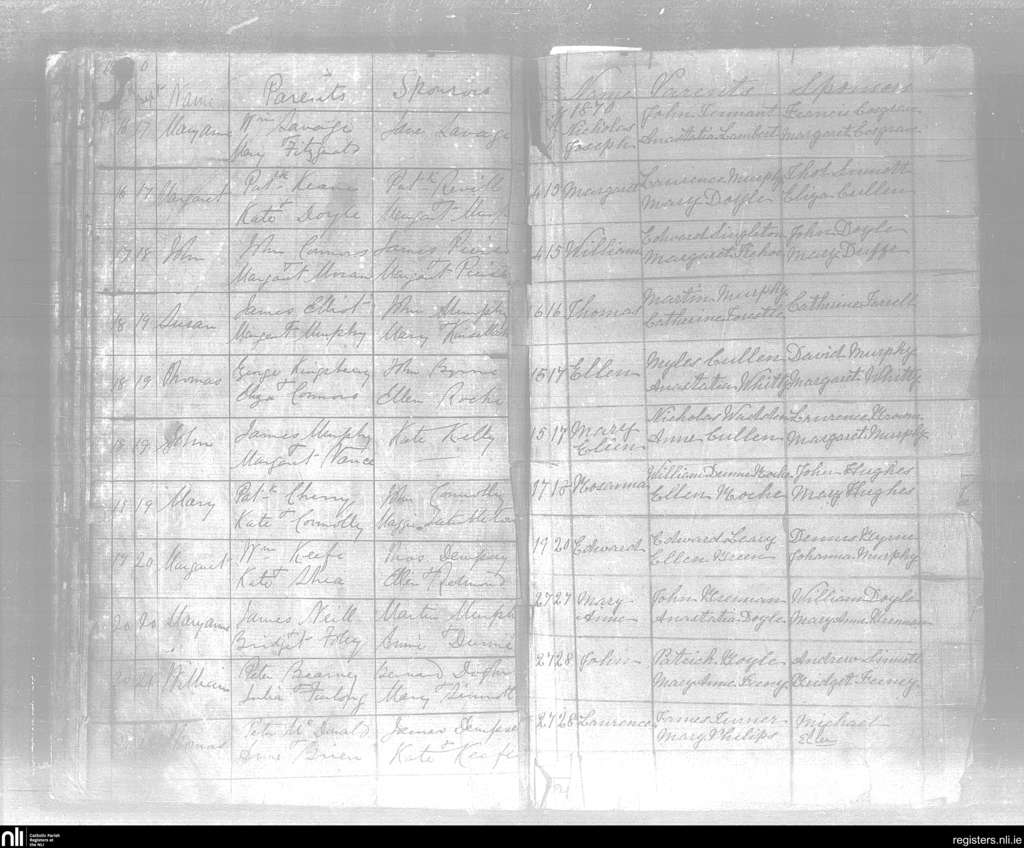 Name Parents Sponsors
16 17 Maryanne Wm Savage Jane Savage
Mary Fitzgerald
16 17 Margaret Patk Keane Patk Revill
Kate Doyle Margaret Murp
17 18 John John Connors James Peirce
Margaret Moran Margaret Peirce
18 19 Susan James Elliot John Murphy
Margaret Murphy Mary Kinsella
18 19 Thomas George Kingsberry John Byrne
Eliza Connors Ellen Roche
18 19 John James Murphy Kate Kelly
Margaret Nance
18 19 Mary Patk Cherry John Connolly
Kate Connolly Maggie
19 20 Margaret Wm Keefe Thos Dempsey
Kate Shea Ellen Redmond
20 20 Maryanne James Neill Martin Murph
Bridget Foley Annie Dunne
21 William Peter Kearney Bernard
Julia Furlong Mary Sinnott
Thomas Peter McDonald James Dempse
Anne Brien Kate Keefe
Name Parents Sponsors
1870
Nicholas John Tennant Francis Cosgrave
Joseph Anastatia Lambert Margaret Cosgrave
4 13 Margaret Laurence Murphy Thos Sinnott
Mary Doyle Eliza Cullen
4 15 William Edward Singleton John Doyle
Margaret Kehoe Mary Duffe
16 16 Thomas Martin Murphy Catherine Farrell
Catherine
15 17 Ellen Myles Cullen David Murphy
Anastatia Whitty Margaret Whitty
15 17 Mary Nicholas Wadden Laurence
Ellen Anne Cullen Margaret Murphy
17 18 Rosanna William Dunne Roche John Hughes
Ellen Roche Mary Hughes
19 20 Edward Edward Leary Dennis
Ellen Green Johanna Murphy
27 27 Mary John William Doyle
Anne Anastatia Doyle Mary Anne
27 28 John Patrick Doyle Andrew Sinnott
Mary Anne Feeney Bridget Feeney
27 28 Laurence James Turner Michael
Mary Philips Ellen
nli Catholic Parish
Registers at
the NLI
registers.nli.ie